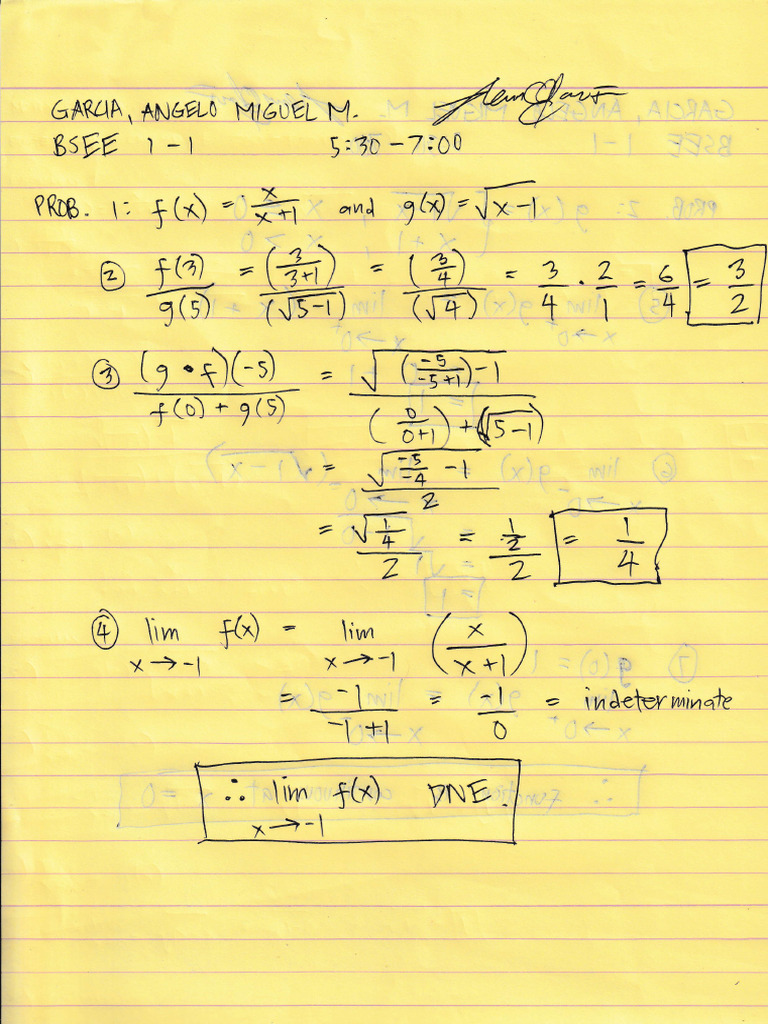 GARCIA, ANGELO MIGUEL M.
BSEE 1-1 5:30-7:00
PROB. 1: f(x) = x/(x+1) and g(x) = √(x-1)
② f(3)/g(5) = (3/(3+1))/(√(5-1)) = (3/4)/(√4) = 3/4 · 2/1 = 6/4 = 3/2
③ (g•f)(-5)/(f(0)+g(5)) = √((-5/(-5+1))-1)/((0/(0+1))+(√(5-1)))
= √(-5/-4 -1)/2
= √(1/4)/2 = (1/2)/2 = 1/4
④ lim x→-1 f(x) = lim x→-1 (x/(x+1))
= -1/(-1+1) = -1/0 = indeterminate
∴ lim x→-1 f(x) DNE.